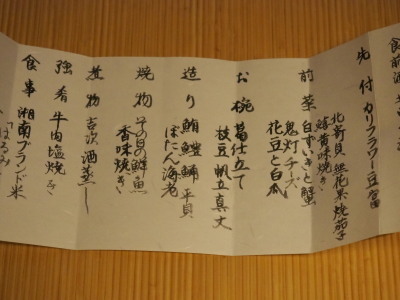 食前酒
先付 カリフラワー豆富
北寄貝 無花果 焼茄子
鱚黄味焼き
前菜 白ずいきと蟹
鬼灯チーズ
花豆と白瓜
お椀 葛仕立て
枝豆帆立真丈
造り 鮪 鱧 鱸 平貝
ぼたん海老
焼物 その日の鮮魚
香味焼き
煮物 吉次酒蒸し
強肴 牛肉塩焼き
食事 湘南ブランド米
「はるみ」